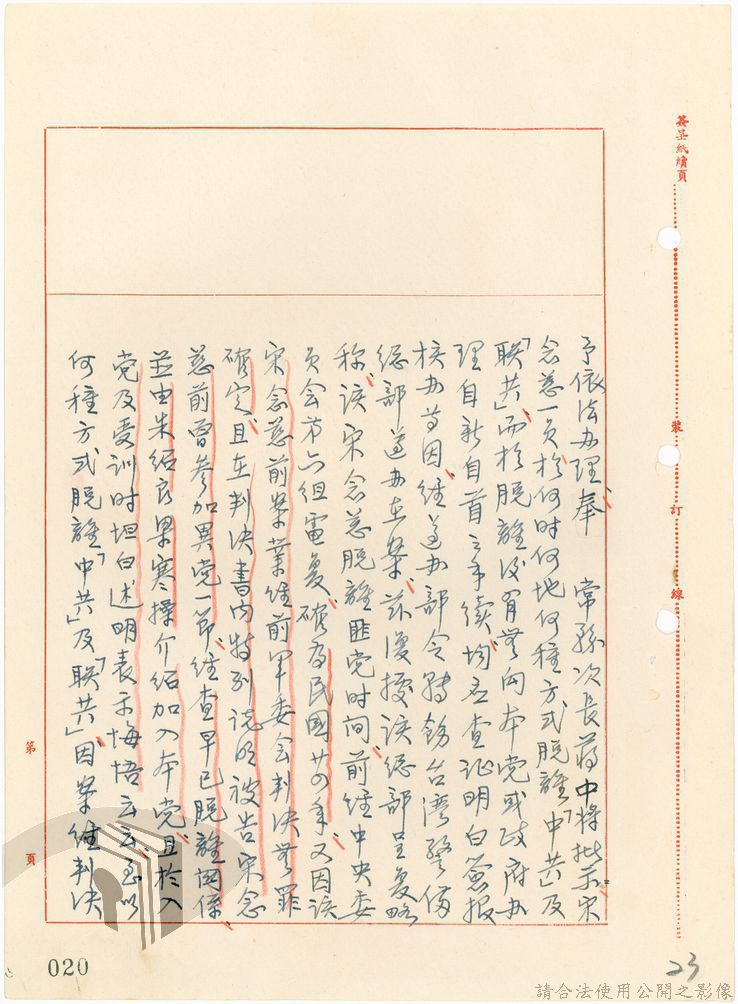 簽呈紙續頁
裝
訂
線
予依法办理奉　常務次長蔣中將批示宋
念慈一员於何时何地何種方式脫離「中共」及
「联共」而於脫離後有無向本党或政府办
理自新自首之手续均應查証明白簽报
核办等因經遵办部令轉飭台灣警備
總部遵办在案茲復據该總部呈复略
称该宋念慈脫離匪党时间前經中央委
员会第六组電复確为民國廿四年又因该
宋念慈前案業經前军委会判决無罪
確定且在判决書内特別説明被告宋念
慈前曾參加異党一節經查早已脫離関係
並由朱绍良果寒操介绍加入本党且於入
党及受訓时坦白述明表示悔悟云云至以
何種方式脫離「中共」及「联共」因案經判决
第
頁
020
23
請合法使用公開之影像